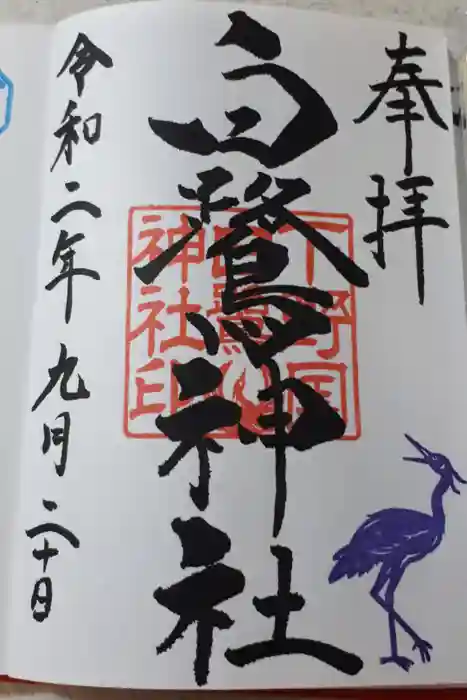 奉拝
白鷺神社
下野国
白鷺
神社印
令和二年九月二十日